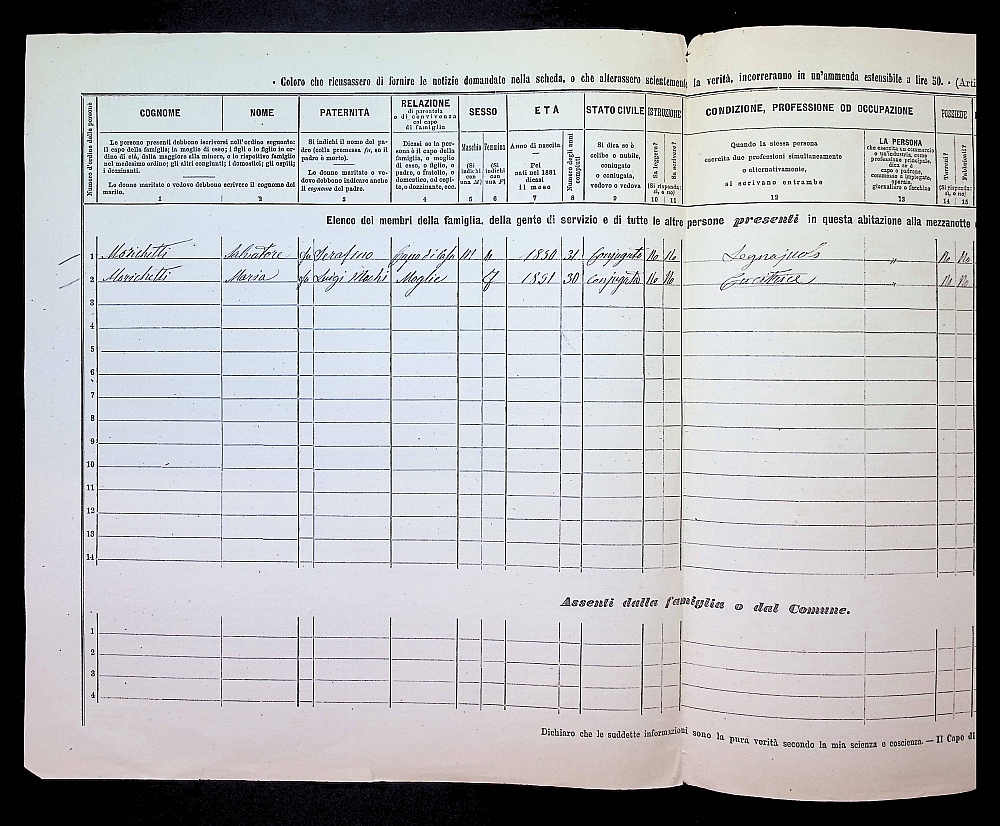 • Coloro che ricusassero di fornire le notizie domandate nella scheda, o che alterassero scientemente la verità, incorreranno in un'ammenda estensibile a lire 50. • (Arti
Numero d'ordine delle persone
COGNOME NOME PATERNITÀ RELAZIONE di parentela o di convivenza col capo di famiglia SESSO ETÀ STATO CIVILE ISTRUZIONE CONDIZIONE, PROFESSIONE OD OCCUPAZIONE POSSIEDE
Le persone presenti debbono iscriversi nell'ordine seguente: il capo della famiglia; la moglie di esso; i figli o le figlie in ordine di età, dalla maggiore alla minore, o la rispettive famiglie nel medesimo ordine; gli altri congiunti; i domestici; gli ospiti; i dozzinanti.
Le donne maritate o vedove debbono scrivere il cognome del marito.
Si indichi il nome del padre (colla premessa fu, se il padre è morto).
Le donne maritate o vedove debbono indicare anche il cognome del padre.
Dicasi se la persona è il capo della famiglia, o moglie di esso, o figlio, o padre, o fratello, o domestico, od ospite, o dozzinante, ecc.
Maschio (Si indichi con una M)
Femmina (Si indichi con una F)
Anno di nascita
—
Pei nati nel 1881 dicasi il mese
Numero degli anni compiuti
Si dica se è celibe o nubile, coniugato o coniugata, vedovo o vedova
Sa leggere? Sa scrivere?
(Si risponda: sì, o no)
Quando la stessa persona esercita due professioni simultaneamente o alternativamente, si scrivano entrambe
LA PERSONA che esercita un commercio o un'industria, come professione principale, dica se è capo o padrone, commesso o impiegato, operaio, giornaliero o facchino
Terreni? Fabbricati?
(Si risponda: sì, o no)
1 2 3 4 5 6 7 8 9 10 11 12 13 14 15
Elenco dei membri della famiglia, della gente di servizio e di tutte le altre persone presenti in questa abitazione alla mezzanotte
1 Morichetti Salvatore fu Serafino Capo di Casa M 1850 31 Conjugato No No „ No No
2 Morichetti Maria fu Luigi Moglie F 1851 30 Conjugata No No Cucitrice „ No No
3
4
5
6
7
8
9
10
11
12
13
14
Assenti dalla famiglia o dal Comune.
1
2
3
4
Dichiaro che le suddette informazioni sono la pura verità secondo la mia scienza e coscienza. — Il Capo di